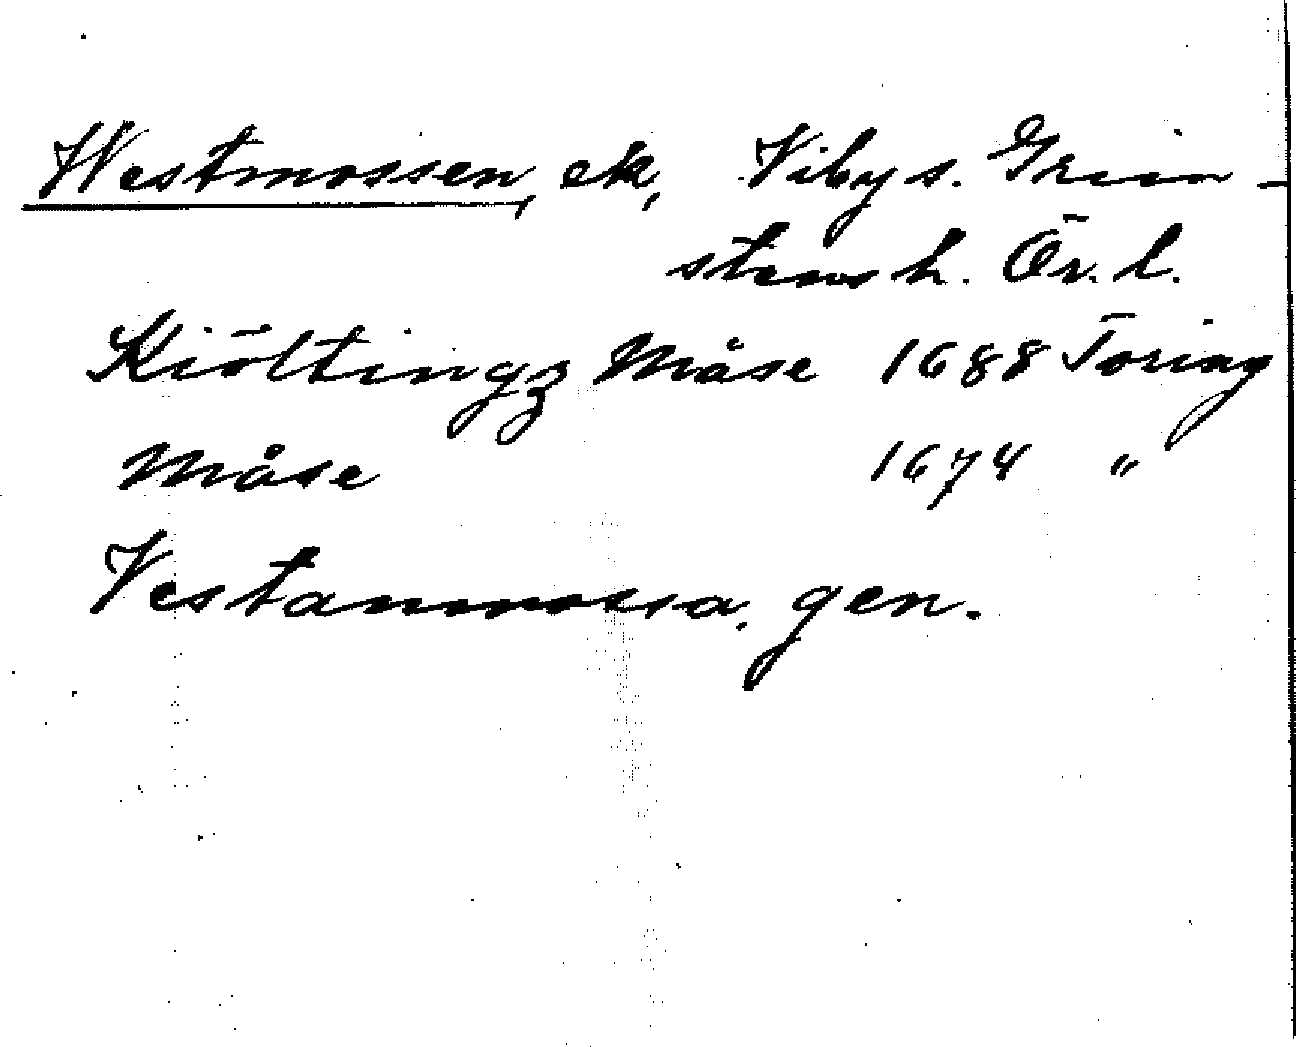 Westmossen, ek, Viby s. Grim-
stens h. Ör. l.
Kiöltingz Måse 1688 Jöring
Måse 1674 "
Vestanmossa, gen.